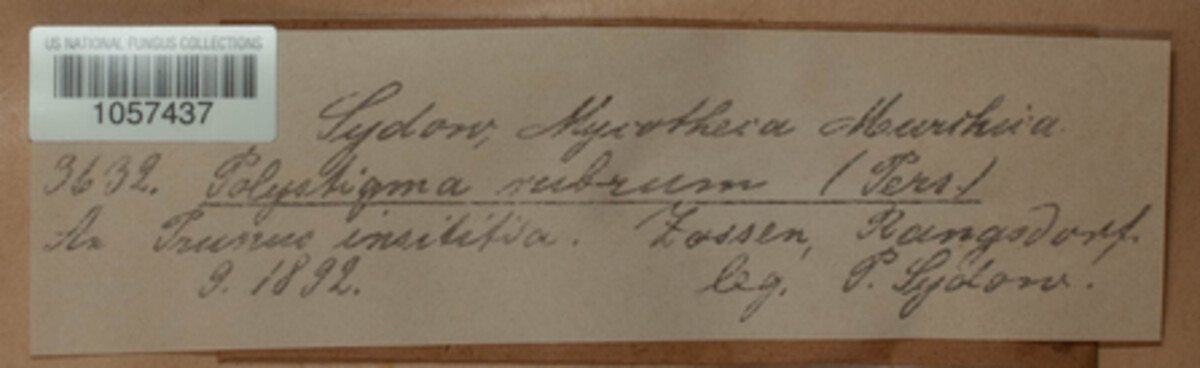 US NATIONAL FUNGUS COLLECTIONS
1057437
Sydow, Mycotheca Marchica.
3632. Polystigma rubrum (Pers.)
An Prunus insititia. Zossen, Rangsdorf.
9. 1892. leg. P. Sydow.